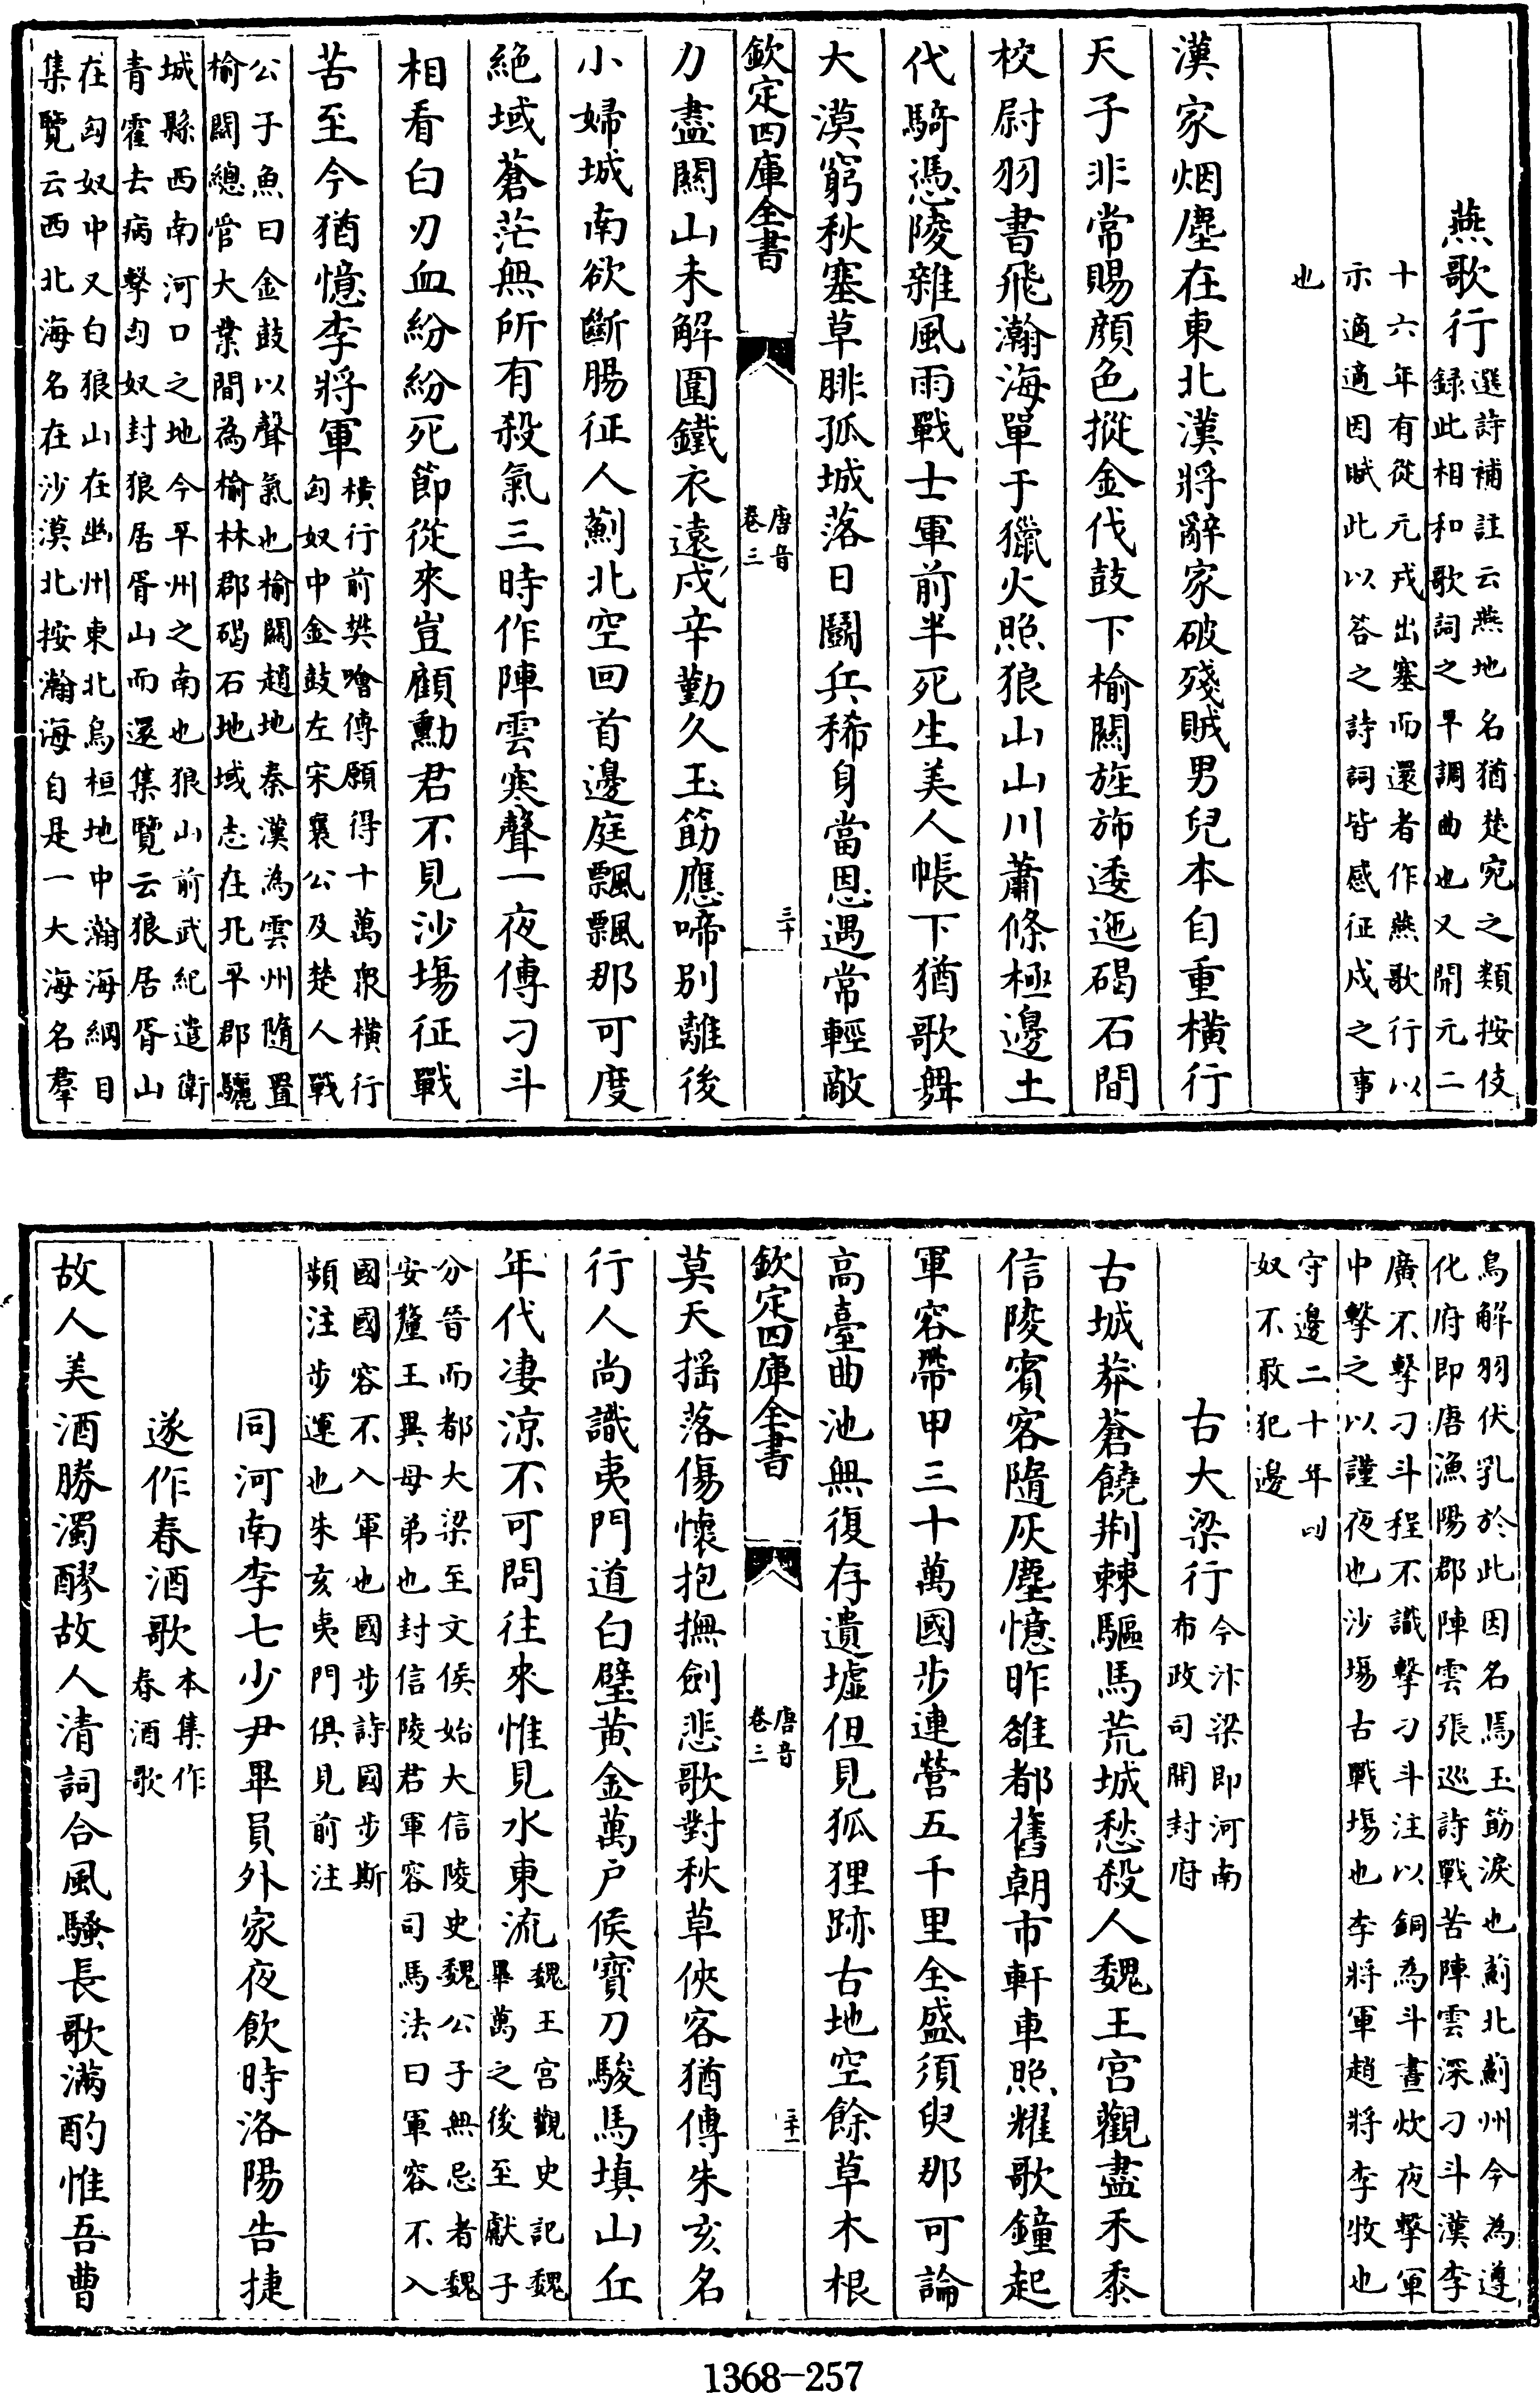 燕歌行選詩補註云燕地名猶楚宛之類按伎
録此相和歌詞之平調曲也又開元二
十六年有從元戎出塞而還者作燕歌行以
示適適因賦此以答之詩詞皆感征戍之事
也
漢家烟塵在東北漢將辭家破殘賊男兒本自重橫行
天子非常賜顔色摐金伐鼓下榆關旌斾逶迤碣石間
校尉羽書飛瀚海單于獵火照狼山山川蕭條極邊土
代騎憑陵雜風雨戰士軍前半死生美人帳下猶歌舞
大漠窮秋塞草腓孤城落日鬬兵稀身當恩遇常輕敵
欽定四庫全書
唐音
卷三
三十
力盡關山未解圍鐵衣遠戍辛勤久玉筯應啼别離後
小婦城南欲斷腸征人薊北空回首邊庭飄飄那可度
絶域蒼茫無所有殺氣三時作陣雲寒聲一夜傳刁斗
相看白刃血紛紛死節從來豈顧勳君不見沙塲征戰
苦至今猶憶李將軍橫行前樊噲傳願得十萬衆橫行
匈奴中金鼓左宋襄公及楚人戰
公子魚曰金鼓以聲氣也榆關趙地秦漢為雲州隋置
榆關總管大業間為榆林郡碣石地域志在北平郡驪
城縣西南河口之地今平州之南也狼山前武紀遣衛
青霍去病擊匈奴封狼居胥山而還集覽云狼居胥山
在匈奴中又白狼山在幽州東北烏桓地中瀚海綱目
集覽云西北海名在沙漠北按瀚海自是一大海名羣
鳥解羽伏乳於此因名焉玉筯淚也薊北薊州今為遵
化府即唐漁陽郡陣雲張巡詩戰苦陣雲深刁斗漢李
廣不擊刁斗程不識擊刁斗注以銅為斗晝炊夜擊軍
中擊之以謹夜也沙塲古戰塲也李將軍趙將李牧也
守邊二十年匈
奴不敢犯邊
古大梁行今汴梁即河南
布政司開封府
古城莽蒼饒荆棘驅馬荒城愁殺人魏王宫觀盡禾黍
信陵賓客隨灰塵憶昨雄都舊朝市軒車照耀歌鐘起
軍容帶甲三十萬國步連營五千里全盛須臾那可論
高臺曲池無復存遺墟但見狐狸跡古地空餘草木根
欽定四庫全書
唐音
卷三
三十一
莫天揺落傷懷抱撫劍悲歌對秋草俠客猶傳朱亥名
行人尚識夷門道白璧黄金萬户侯寶刀駿馬填山丘
年代凄涼不可問往來惟見水東流魏王宫觀史記魏
畢萬之後至獻子
分晉而都大梁至文侯始大信陵史魏公子無忌者魏
安釐王異母弟也封信陵君軍容司馬法曰軍容不入
國國容不入軍也國步詩國步斯
頻注步運也朱亥夷門俱見前注
同河南李七少尹畢員外家夜飲時洛陽告捷
遂作春酒歌本集作
春酒歌
故人美酒勝濁醪故人清詞合風騷長歌滿酌惟吾曹
1368-257